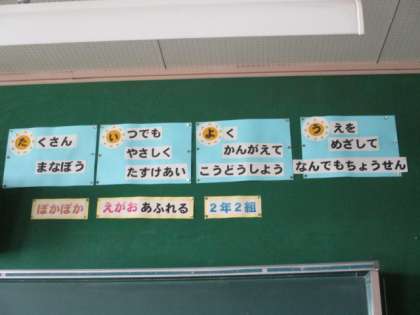 たくさん
まなぼう
いつでも
やさしく
たすけあい
よく
かんがえて
こうどうしよう
うえを
めざして
なんでもちょうせん
ぽかぽか
えがおあふれる
2年2組